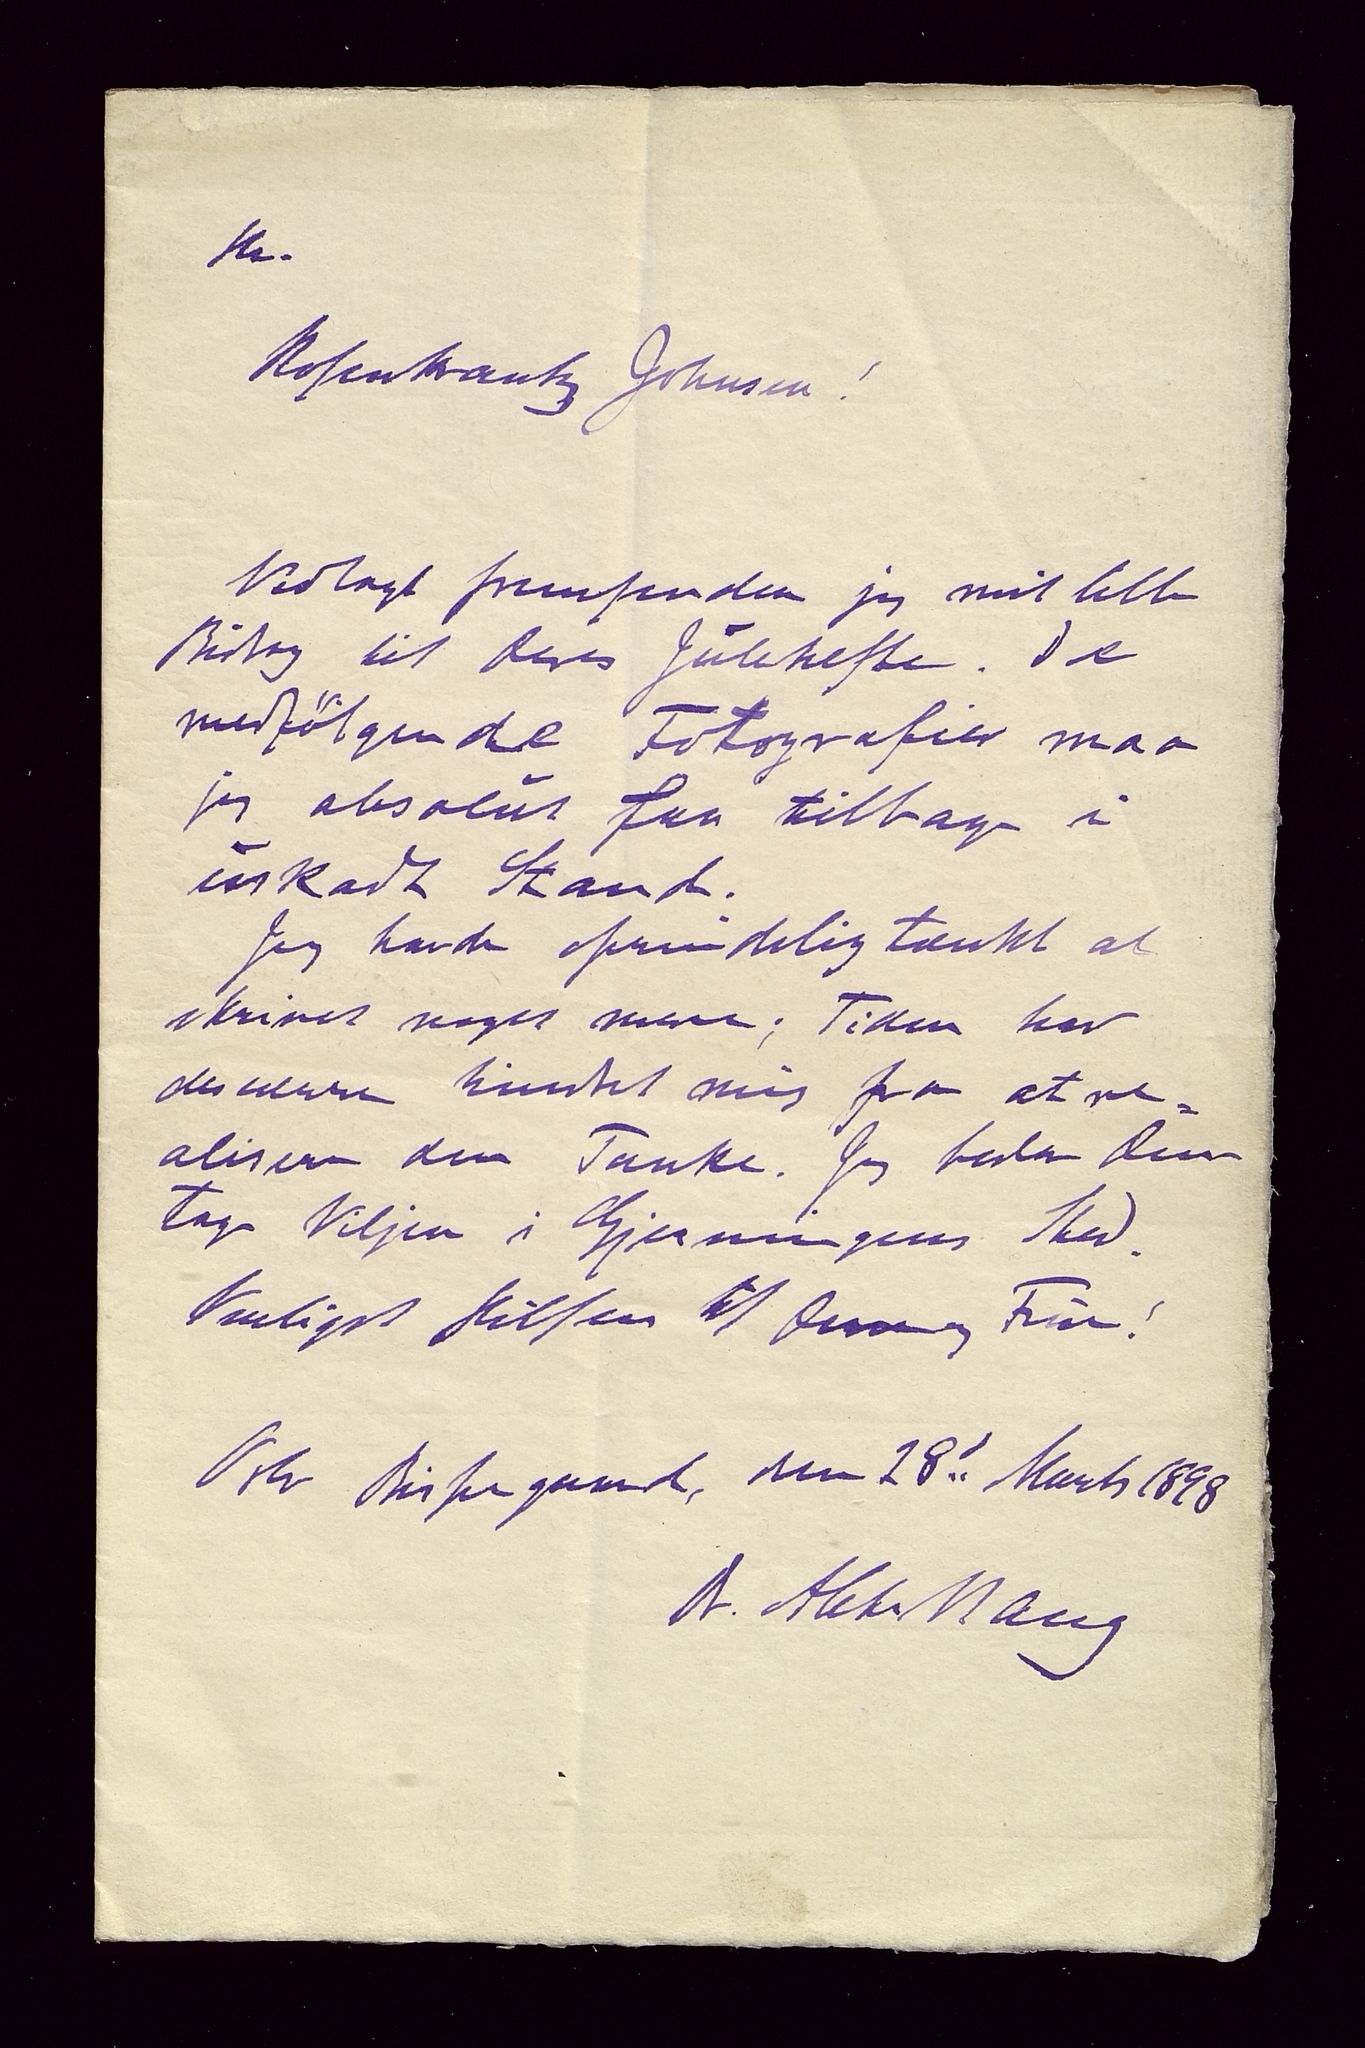 Hr.
Rosenkrantz Johnsen!
Vedlagt fremsender jeg mit lille
Bidrag til Deres Julehefte. De
medfölgende Fotografier maa
jeg absolut faa tilbage i
uskadt Stand.
Jeg havde oprindelig tænkt at
skrivet noget mere; Tiden har
desværre hindret mig fra at re=
alisere den Tanke. Jeg beder Dem
tage Viljen i Gjerningens Sted.
Venligst Hilsen til Dem og Frue!
Oslo Bispegaard, den 28d Marts 1898
Dr. Alektr Haug